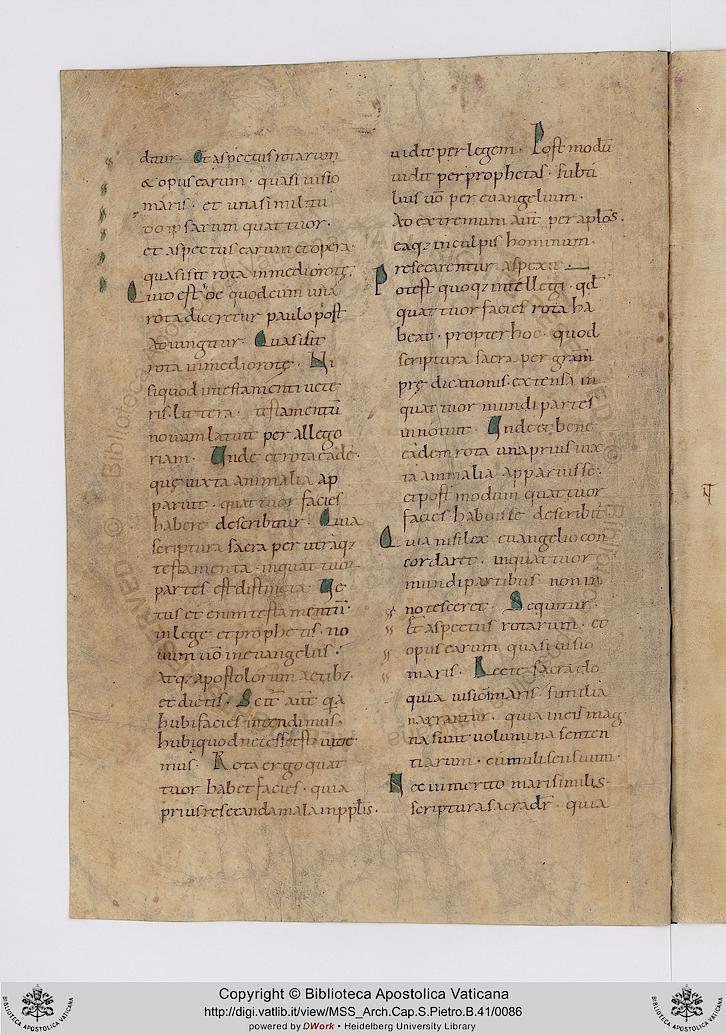 ditur. Et aspectus rotarum
& opus earum. quasi visio
maris. et una similitu
do ipsarum quattuor.
et aspectus earum et opera
quasi sit rota in medio rotę.
Quid est hoc quod cum una
rota diceretur paulo post
adiungitur. Quasi sit
rota in medio rotę. Ni
si quod in testamenti vete
ris littera. testamentū
novum latuit per allego
riam. Unde et rota eadē
quę iuxta animalia ap
paruit. quattuor facies
habere describitur. Quia
scriptura sacra per utraq;
testamenta. in quattuor
partes est distincta. Ve
tus etenim testamentū
in lege et prophetis. no
vum vō in evangeliis.
Atq; apostolorum actib;
et dictis. Scit aūt qa
hubi facies intendimus.
hubi quod necesse est vide
mus. Rota ergo quat
tuor habet facies. quia
prius resecanda mala in pplis.
vidit per legem. Post modū
vidit per prophetas. subti
lius vō per evangelium.
Ad extremum aūt per aplos.
eaq; in culpis hominum
resecarentur aspexit.
Potest quoq; intellegi. qd
quattuor facies rota ha
beat. propter hoc. quod
scriptura sacra per gram
prędicationis extensa in
quattuor mundi partes
innotuit. Unde et bene
eadem rota una prius iux
ta animalia apparuisse.
et post modum quattuor
facies habuisse describit
Quia nisi lex evangelio con
cordaret. in quattuor
mundi partibus non in
notesceret. Sequitur.
Et aspectus rotarum. et
opus earum quasi visio
maris. Recte sacra elo
quia visioni maris similia
narrantur. quia in eis mag
na sunt volumina senten
tiarum. cumuli sensuum.
Nec inmerito mari similis
scriptura sacra dr. quia
Copyright © Biblioteca Apostolica Vaticana
http://digi.vatlib.it/view/MSS_Arch.Cap.S.Pietro.B.41/0086
powered by DWork • Heidelberg University Library